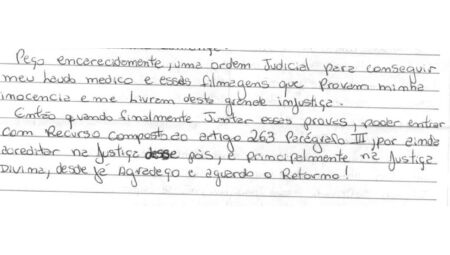 Peço encarecidamente, uma ordem Judicial para conseguir
meu laudo medico e essas filmagens que Provam minha
inocencia e me Livrem desta grande injustiça.
Então quando finalmente Juntar esses provas, poder entrar
com Recurso composto ao artigo 263 Parágrafo III, por ainda
acreditar na Justiça desse país, e principalmente na Justiça
Divina, desde já Agradeço e aguardo o Retorno!